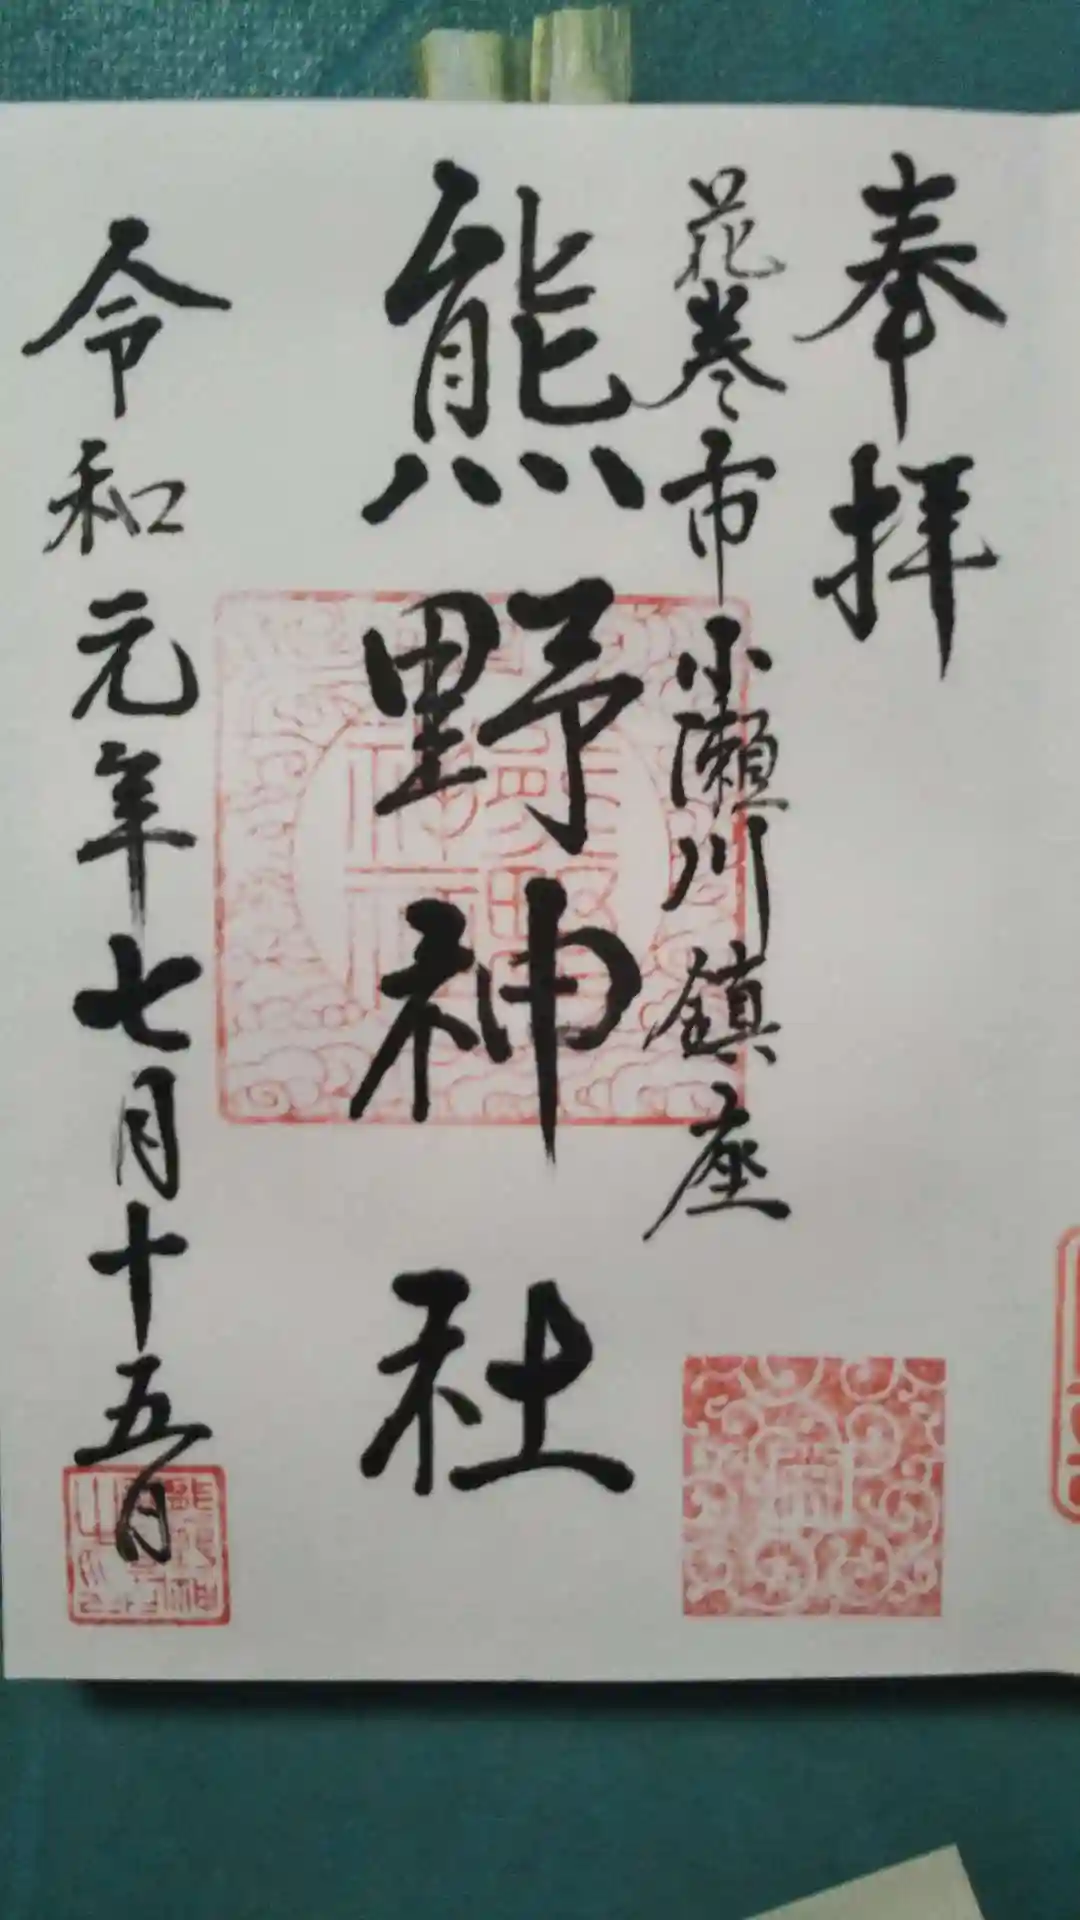 奉拝
花巻市小瀬川鎮座
熊野神社
令和元年七月十五日